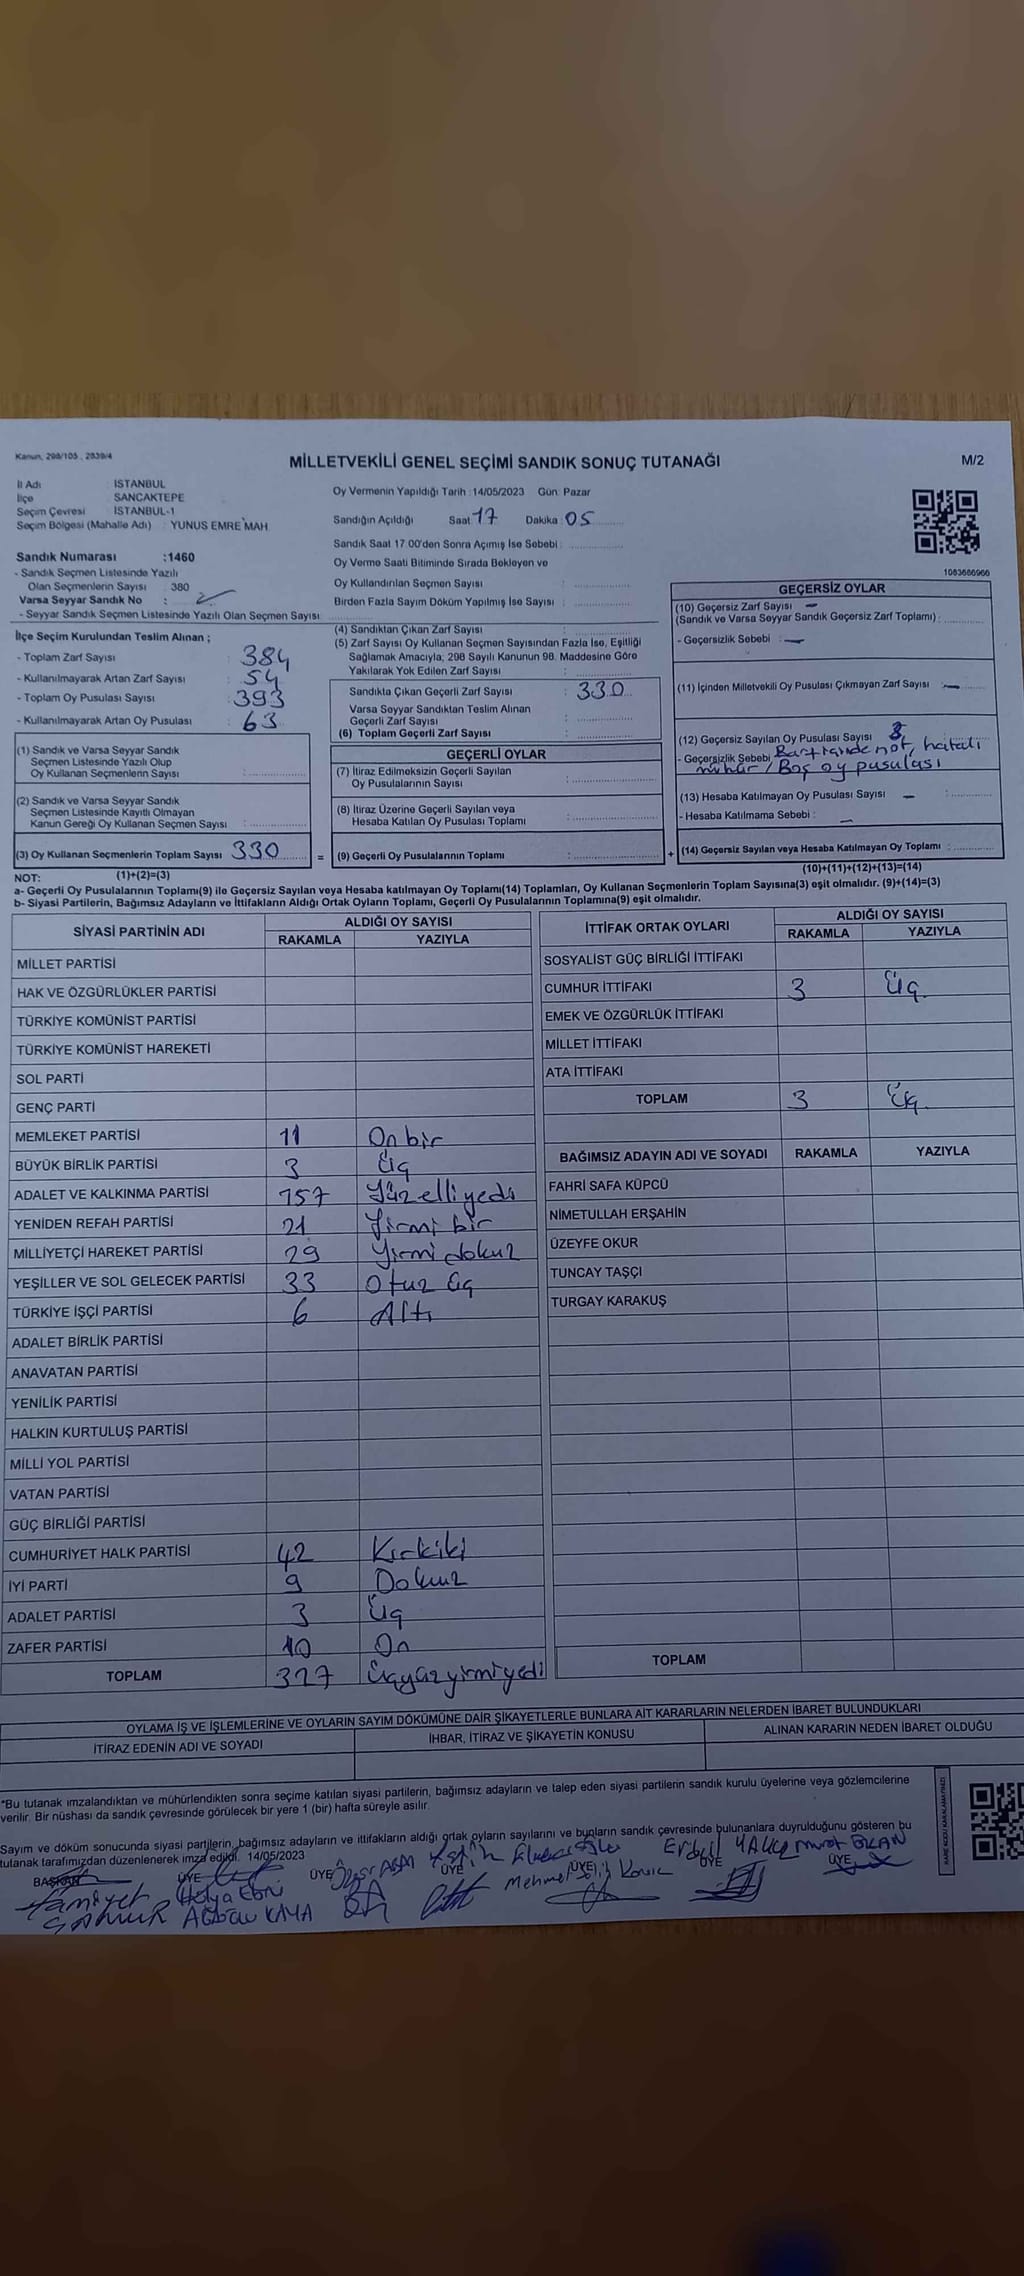 Kanun, 298/105 , 2839/4
MİLLETVEKİLİ GENEL SEÇİMİ SANDIK SONUÇ TUTANAĞI
M/2
İl Adı : İSTANBUL
İlçe : SANCAKTEPE
Seçim Çevresi : İSTANBUL-1
Seçim Bölgesi (Mahalle Adı) : YUNUS EMRE MAH
Sandık Numarası :1460
- Sandık Seçmen Listesinde Yazılı
Olan Seçmenlerin Sayısı : 380
Varsa Seyyar Sandık No :
- Seyyar Sandık Seçmen Listesinde Yazılı Olan Seçmen Sayısı :
Oy Vermenin Yapıldığı Tarih :14/05/2023 Gün: Pazar
Sandığın Açıldığı Saat: 17 Dakika: 05
Sandık Saat 17.00'den Sonra Açımış İse Sebebi :
Oy Verme Saati Bitiminde Sırada Bekleyen ve
Oy Kullandırılan Seçmen Sayısı :
Birden Fazla Sayım Döküm Yapılmış İse Sayısı :
1083686966
İlçe Seçim Kurulundan Teslim Alınan ;
- Toplam Zarf Sayısı : 384
- Kullanılmayarak Artan Zarf Sayısı : 54
- Toplam Oy Pusulası Sayısı : 393
- Kullanılmayarak Artan Oy Pusulası : 63
(1) Sandık ve Varsa Seyyar Sandık
Seçmen Listesinde Yazılı Olup
Oy Kullanan Seçmenlerin Sayısı :
(2) Sandık ve Varsa Seyyar Sandık
Seçmen Listesinde Kayıtlı Olmayan
Kanun Gereği Oy Kullanan Seçmen Sayısı :
(3) Oy Kullanan Seçmenlerin Toplam Sayısı : 330
(4) Sandıktan Çıkan Zarf Sayısı :
(5) Zarf Sayısı Oy Kullanan Seçmen Sayısından Fazla İse, Eşitliği
Sağlamak Amacıyla; 298 Sayılı Kanunun 98. Maddesine Göre
Yakılarak Yok Edilen Zarf Sayısı :
Sandıkta Çıkan Geçerli Zarf Sayısı : 330
Varsa Seyyar Sandıktan Teslim Alınan
Geçerli Zarf Sayısı :
(6) Toplam Geçerli Zarf Sayısı :
GEÇERLİ OYLAR
(7) İtiraz Edilmeksizin Geçerli Sayılan
Oy Pusulalarının Sayısı :
(8) İtiraz Üzerine Geçerli Sayılan veya
Hesaba Katılan Oy Pusulası Toplamı :
= (9) Geçerli Oy Pusulalarının Toplamı :
GEÇERSİZ OYLAR
(10) Geçersiz Zarf Sayısı —
(Sandık ve Varsa Seyyar Sandık Geçersiz Zarf Toplamı) :
- Geçersizlik Sebebi : —
(11) İçinden Milletvekili Oy Pusulası Çıkmayan Zarf Sayısı : —
(12) Geçersiz Sayılan Oy Pusulası Sayısı :
- Geçersizlik Sebebi : not, hatalı
mühür / Boş oy pusulası
(13) Hesaba Katılmayan Oy Pusulası Sayısı —
- Hesaba Katılmama Sebebi : —
+ (14) Geçersiz Sayılan veya Hesaba Katılmayan Oy Toplamı :
NOT: (1)+(2)=(3)
(10)+(11)+(12)+(13)=(14)
a- Geçerli Oy Pusulalarının Toplamı(9) ile Geçersiz Sayılan veya Hesaba katılmayan Oy Toplamı(14) Toplamları, Oy Kullanan Seçmenlerin Toplam Sayısına(3) eşit olmalıdır. (9)+(14)=(3)
b- Siyasi Partilerin, Bağımsız Adayların ve İttifakların Aldığı Ortak Oyların Toplamı, Geçerli Oy Pusulalarının Toplamına(9) eşit olmalıdır.
SİYASİ PARTİNİN ADI
ALDIĞI OY SAYISI
RAKAMLA YAZIYLA
MİLLET PARTİSİ
HAK VE ÖZGÜRLÜKLER PARTİSİ
TÜRKİYE KOMÜNİST PARTİSİ
TÜRKİYE KOMÜNİST HAREKETİ
SOL PARTİ
GENÇ PARTİ
MEMLEKET PARTİSİ 11 On bir
BÜYÜK BİRLİK PARTİSİ 3 Üç
ADALET VE KALKINMA PARTİSİ 157 Yüzelliyedi
YENİDEN REFAH PARTİSİ 21 Yirmi bir
MİLLİYETÇİ HAREKET PARTİSİ 29 Yirmi dokuz
YEŞİLLER VE SOL GELECEK PARTİSİ 33 Otuz üç
TÜRKİYE İŞÇİ PARTİSİ 6 Altı
ADALET BİRLİK PARTİSİ
ANAVATAN PARTİSİ
YENİLİK PARTİSİ
HALKIN KURTULUŞ PARTİSİ
MİLLİ YOL PARTİSİ
VATAN PARTİSİ
GÜÇ BİRLİĞİ PARTİSİ
CUMHURİYET HALK PARTİSİ 42 Kırkiki
İYİ PARTİ 9 Dokuz
ADALET PARTİSİ 3 Üç
ZAFER PARTİSİ 10 On
TOPLAM 327 Üçyüzyirmiyedi
İTTİFAK ORTAK OYLARI
ALDIĞI OY SAYISI
RAKAMLA YAZIYLA
SOSYALİST GÜÇ BİRLİĞİ İTTİFAKI
CUMHUR İTTİFAKI 3 Üç
EMEK VE ÖZGÜRLÜK İTTİFAKI
MİLLET İTTİFAKI
ATA İTTİFAKI
TOPLAM 3 Üç
BAĞIMSIZ ADAYIN ADI VE SOYADI RAKAMLA YAZIYLA
FAHRİ SAFA KÜPCÜ
NİMETULLAH ERŞAHİN
ÜZEYFE OKUR
TUNCAY TAŞÇI
TURGAY KARAKUŞ
TOPLAM
OYLAMA İŞ VE İŞLEMLERİNE VE OYLARIN SAYIM DÖKÜMÜNE DAİR ŞİKAYETLERLE BUNLARA AİT KARARLARIN NELERDEN İBARET BULUNDUKLARI
İTİRAZ EDENİN ADI VE SOYADI
İHBAR, İTİRAZ VE ŞİKAYETİN KONUSU
ALINAN KARARIN NEDEN İBARET OLDUĞU
*Bu tutanak imzalandıktan ve mühürlendikten sonra seçime katılan siyasi partilerin, bağımsız adayların ve talep eden siyasi partilerin sandık kurulu üyelerine veya gözlemcilerine
verilir. Bir nüshası da sandık çevresinde görülecek bir yere 1 (bir) hafta süreyle asılır.
Sayım ve döküm sonucunda siyasi partilerin, bağımsız adayların ve ittifakların aldığı ortak oyların sayılarını ve bunların sandık çevresinde bulunanlara duyrulduğunu gösteren bu
tutanak tarafımızdan düzenlenerek imza edildi. 14/05/2023
BAŞKAN ÜYE ÜYE ÜYE ÜYE ÜYE ÜYE
Hülya Ebru
KAYA
Mehmet
Murat